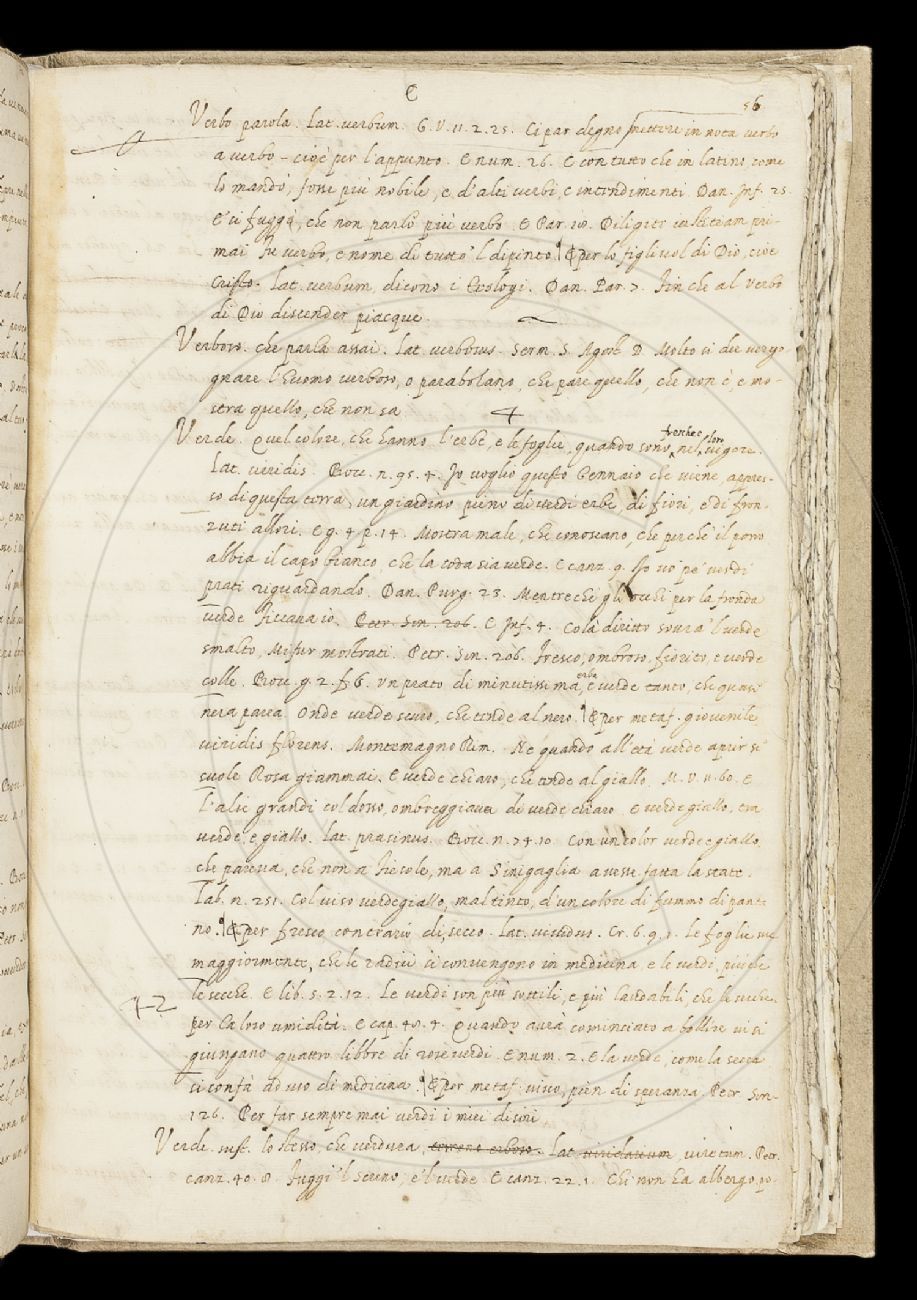 C
56
Verbo parola. Lat. verbum. G. V. 11. 2. 25. Ci par degno mettere in nota verbo
a verbo – cioè per l'appunto. E num. 26. E con tutto che in latino come
lo mandò, fosse più nobile, e d'alti verbi, e intendimenti. Dan. Inf. 25.
E' si fuggì, che non parlò più verbo. E Par. 18. Diligite iustitiam pri-
mai fu verbo, e nome di tutto 'l dipinto. ¶ E per lo figliuol di Dio, cioè
Cristo. Lat. verbum, dicono i Teologi. Dan. Par. 7. Fin che al verbo
di Dio discender piacque.
Verboso. che parla assai. Lat. verbosus. Serm. S. Agost. D. Molto si dee vergo-
gnare l'huomo verboso, o parabolano, che pare quello, che non è, e mo-
stra quello, che non sa.
Verde. Quel colore, che hanno l'erbe, e le foglie, quando sono fresche, nel loro vigore.
Lat. viridis. Bocc. n. 95. 4. Io voglio questo Gennaio che viene, appres-
so di questa terra, un giardino pieno di verdi erbe, di fiori, e di fron-
zuti albori. E g. 4. p. 14. Mostra male, che conoscano, che perchè il porro
abbia il capo bianco, che la coda sia verde. E canz. 9. Io vo pe' verdi
prati riguardando. Dan. Purg. 23. Mentre che gli occhi per la fronda
verde ficcava io. Petr. Son. 206. E Inf. 4. Colà diritto sovra 'l verde
smalto, Mi fur mostrati. Petr. Son. 206. Fresco, ombroso, fiorito, e verde
colle. Bocc. g. 2. f. 6. Un prato di minutissima erba, e verde tanto, che quasi
nera parea. Onde verde scuro, che tende al nero. ¶ E per metaf. giovenile
viridis florens. Montemagno Rim. Ne quando all'età verde aprir si
suole Rosa giammai. E verde chiaro, che tende al giallo. M. V. 11. 60. E
l'alie grandi col dosso, ombreggiava di verde chiaro. E verdegiallo, tra
verde, e giallo. Lat. prasinus. Bocc. n. 74. 10. Con un color verde e giallo,
che pareva, che non a Fiesole, ma a Sinigaglia avesse fatta la state.
Lab. n. 251. Col viso verdegiallo, maltinto, d'un colore di fummo di panta-
no. ¶ E per fresco contrario di secco. Lat. viridus. Cr. 6. 9. 1. Le foglie sue
maggiormente, che le radici si convengono in medicina e le verdi, più che
le secche. E lib. 5. 2. 12. Le verdi son più sottili, e più laudabili, che le secche.
per la loro umidità. E cap. 48. 4. Quando avrà cominciato a bollire vi si
giungano quattro libbre di rose verdi. E num. 2. E la verde, come la secca
si confà ad uso di medicina. ¶ E per metaf. vivo, pien di speranza. Petr. Son.
126. Per far sempre mai verdi i miei disiri.
Verde. sust. lo stesso, che verdura, terreno erboso. Lat. viridarium, viretum. Petr.
canz. 40. 8. Fuggi 'l sereno, e 'l verde. E canz. 22. 1. Chi non ha albergo, po-